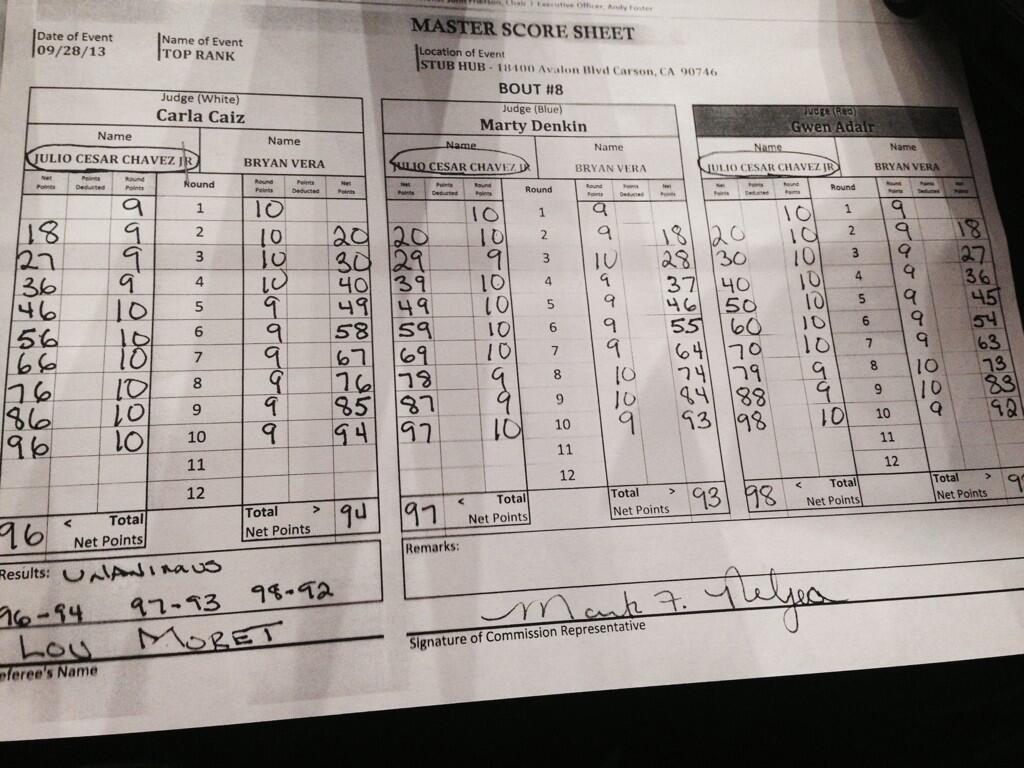 Chair | Executive Officer, Andy Foster
MASTER SCORE SHEET
Date of Event
09/28/13
Name of Event
TOP RANK
Location of Event
STUB HUB - 18400 Avalon Blvd Carson, CA 90746
BOUT #8
Judge (White) Judge (Blue) Judge (Red)
Carla Caiz Marty Denkin Gwen Adair
Name Name Name Name Name Name
JULIO CESAR CHAVEZ JR BRYAN VERA JULIO CESAR CHAVEZ JR BRYAN VERA JULIO CESAR CHAVEZ JR BRYAN VERA
Net Points Points Deducted Round Points Round Round Points Points Deducted Net Points Net Points Points Deducted Round Points Round Round Points Points Deducted Net Points Net Points Points Deducted Round Points Round Round Points Points Deducted Net Points
9 1 10 10 1 9 10 1 9
18 9 2 10 20 20 10 2 9 18 20 10 2 9 18
27 9 3 10 30 29 9 3 10 28 30 10 3 9 27
36 9 4 10 40 39 10 4 9 37 40 10 4 9 36
46 10 5 9 49 49 10 5 9 46 50 10 5 9 45
56 10 6 9 58 59 10 6 9 55 60 10 6 9 54
66 10 7 9 67 69 10 7 9 64 70 10 7 9 63
76 10 8 9 76 78 9 8 10 74 79 9 8 10 73
86 10 9 9 85 87 9 9 10 84 88 9 9 10 83
96 10 10 9 94 97 10 10 9 93 98 10 10 9 92
11 11 11
12 12 12
96 < Total Net Points Total > Net Points 94 97 < Total Net Points Total > Net Points 93 98 < Total Net Points Total > Net Points 9
Results: UNANIMOUS
96-94 97-93 98-92
LOU MORET
eferee's Name
Remarks:
Mark F.
Signature of Commission Representative